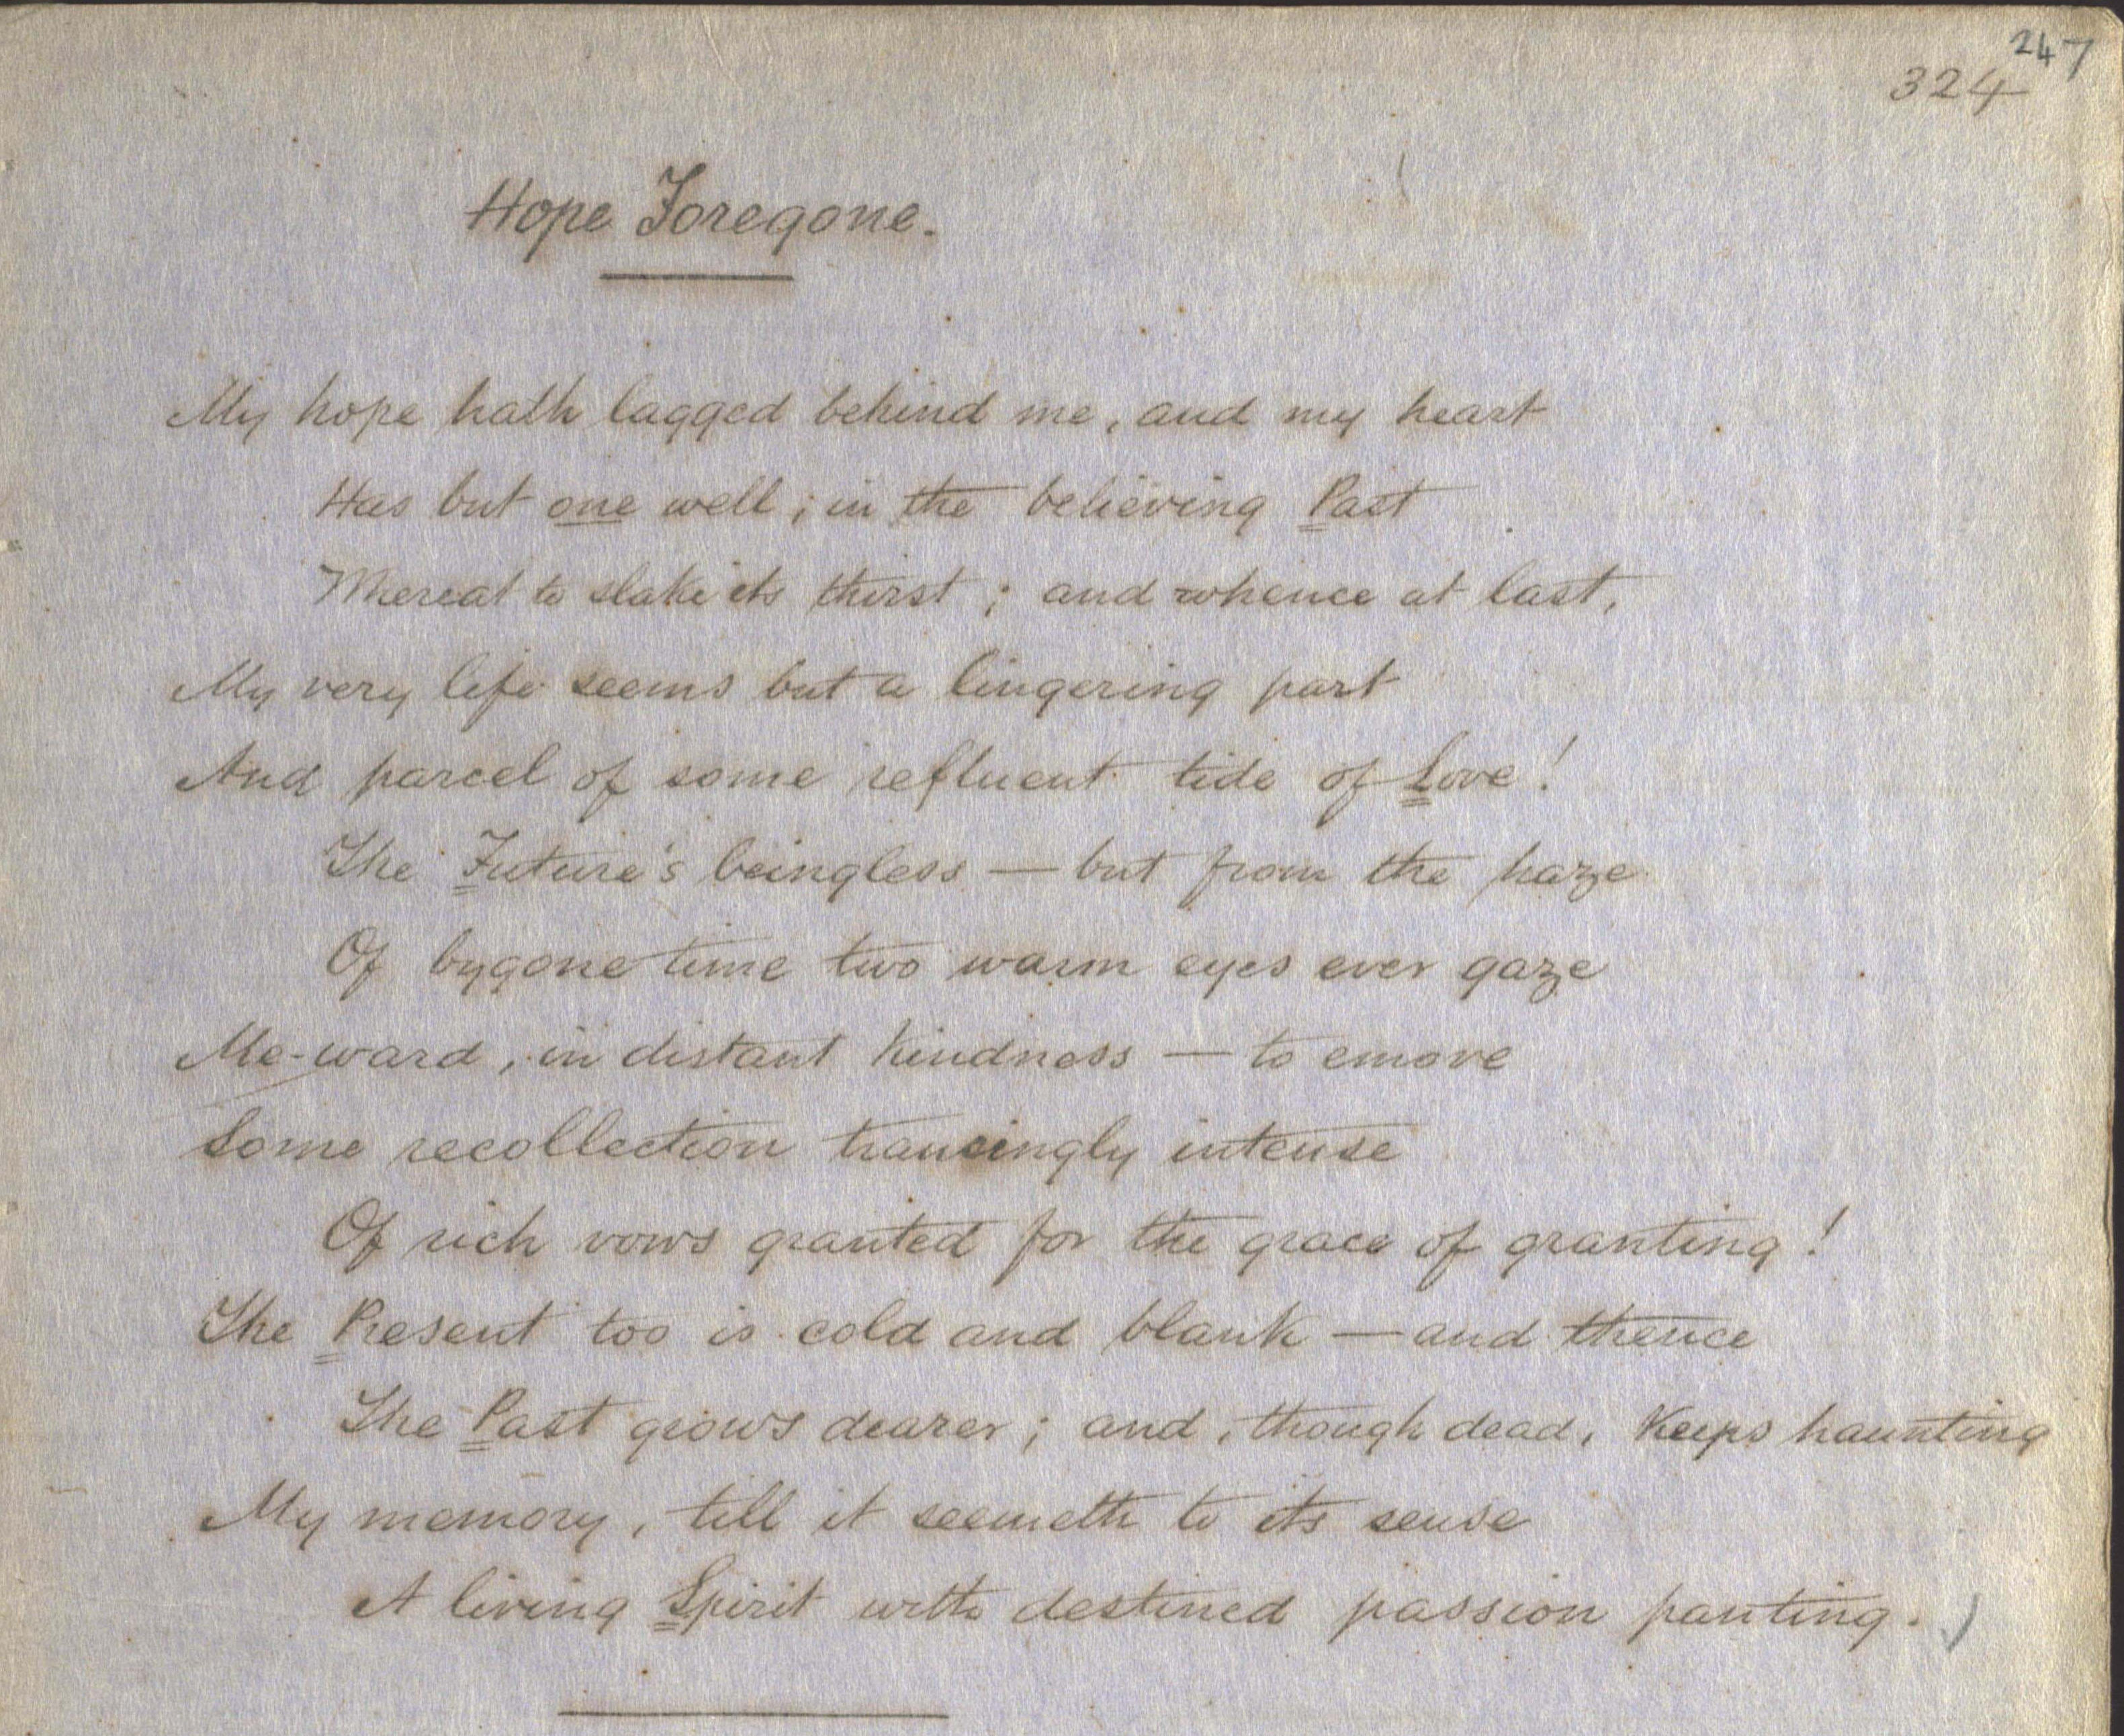 247
324
Hope Foregone.
My hope hath lagged behind me, and my heart
Has but one well; in the believing Past
Whereat to slake its thirst; and whence at last,
My very life seems but a lingering part
And parcel of some refluent tide of Love!
The Future's beingless — but from the haze
Of bygone time two warm eyes ever gaze
Me-ward, in distant kindness — to emove
Some recollection trancingly intense
Of rich vows granted for the grace of granting!
The Present too is cold and blank — and thence
The Past grows dearer; and, though dead, keeps haunting
My memory, till it seemeth to its sense
A living Spirit with destined passion panting.